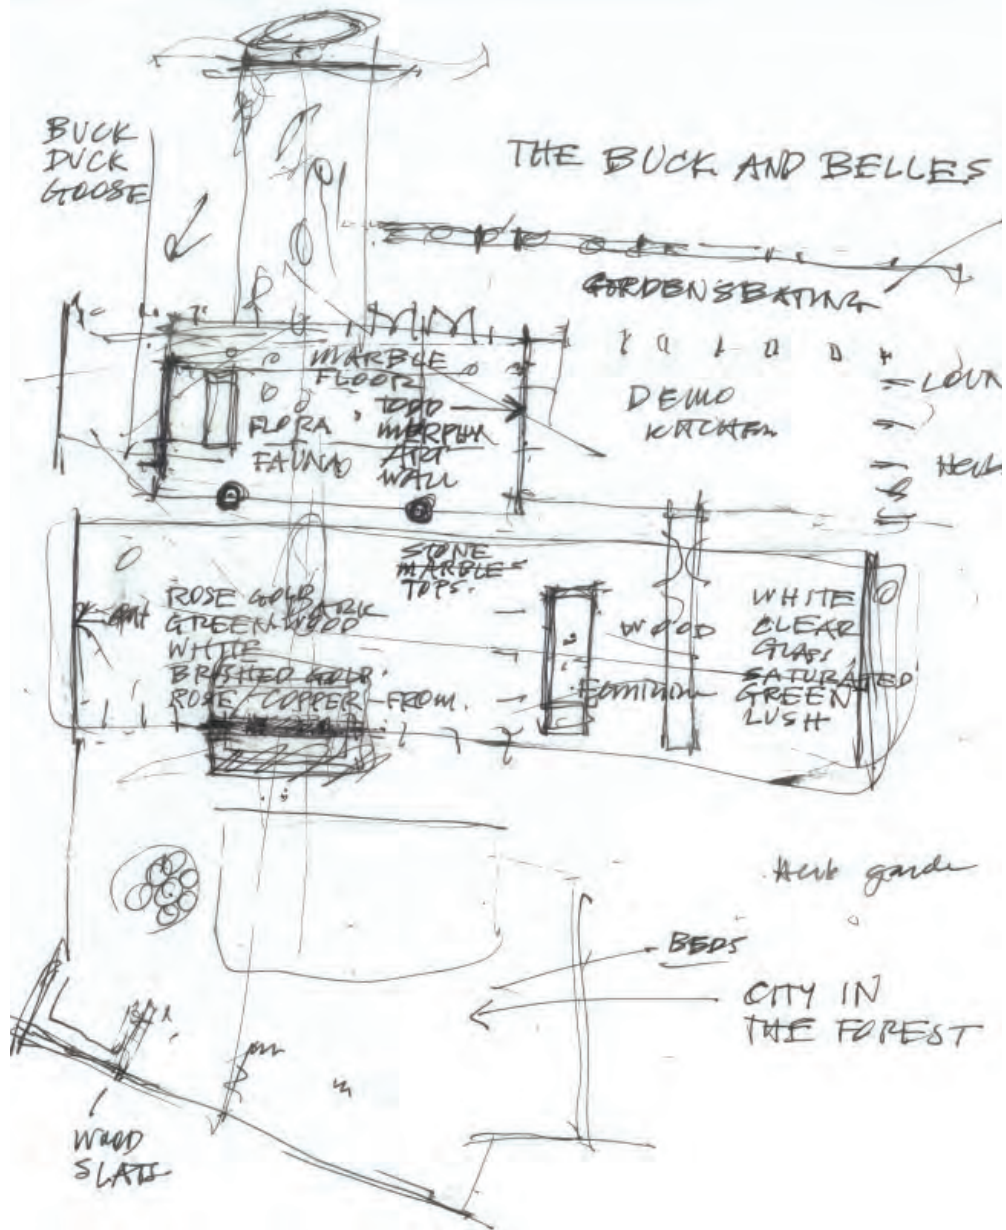 BUCK
DUCK
GOOSE
THE BUCK AND BELLES
GORDEN SEATING
MARBLE
FLOOR
TODD
MURPHY
ART
WALL
FLORA
FAUNA
DEMO
KITCHEN
LOUN
STONE
MARBLE
TOPS.
ROSE GOLD
DARK
GREEN WOOD
WHITE
BRUSHED GOLD
ROSE COPPER FROM.
WOOD
WHITE
CLEAR
GLASS
SATURATED
GREEN
LUSH
BEDS
CITY IN
THE FOREST
WOOD
SLATS